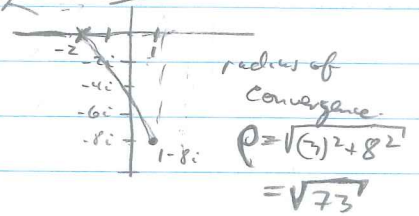 -2 1
-2i
-4i
-6i
-8i
1-8i
radius of
Convergence.
ρ=√(3)²+8²
=√73